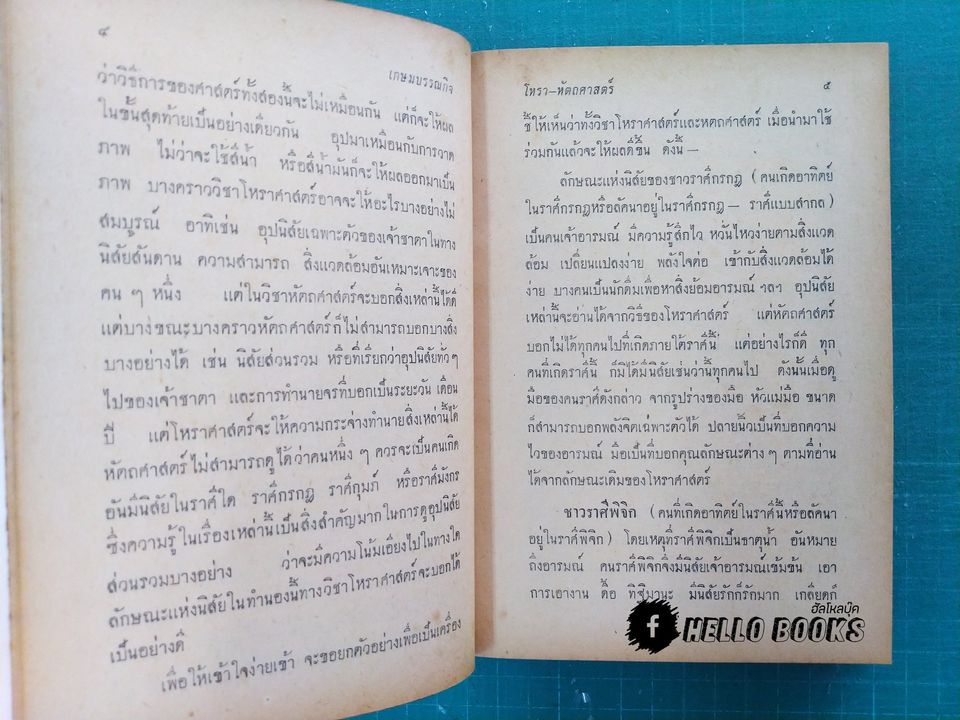 ๔
เกษมบรรณกิจ
ว่าวิธีการของศาสตร์ทั้งสองนี้จะไม่เหมือนกัน แต่ก็จะให้ผล
ในขั้นสุดท้ายเป็นอย่างเดียวกัน อุปมาเหมือนกับการวาด
ภาพ ไม่ว่าจะใช้สีน้ำ หรือสีน้ำมันก็จะให้ผลออกมาเป็น
ภาพ บางคราววิชาโหราศาสตร์อาจจะให้อะไรบางอย่างไม่
สมบูรณ์ อาทิเช่น อุปนิสัยเฉพาะตัวของเจ้าชาตาในทาง
นิสัยสันดาน ความสามารถ สิ่งแวดล้อมอันเหมาะเจาะของ
คน ๆ หนึ่ง แต่ในวิชาหัตถศาสตร์จะบอกสิ่งเหล่านี้ได้ดี
แต่บางขณะบางคราวหัตถศาสตร์ก็ไม่สามารถบอกบางสิ่ง
บางอย่างได้ เช่น นิสัยส่วนรวม หรือที่เรียกว่าอุปนิสัยทั่ว ๆ
ไปของเจ้าชาตา และการทำนายจรที่บอกเป็นระยะวัน เดือน
ปี แต่โหราศาสตร์จะให้ความกระจ่างทำนายสิ่งเหล่านี้ได้
หัตถศาสตร์ไม่สามารถดูได้ว่าคนหนึ่ง ๆ ควรจะเป็นคนเกิด
อันมีนิสัยในราศีใด ราศีกรกฎ ราศีกุมภ์ หรือราศีมังกร
ซึ่งความรู้ในเรื่องเหล่านี้เป็นสิ่งสำคัญมากในการดูอุปนิสัย
ส่วนรวมบางอย่าง ว่าจะมีความโน้มเอียงไปในทางใด
ลักษณะแห่งนิสัยในทำนองนี้ทางวิชาโหราศาสตร์จะบอกได้
เป็นอย่างดี
เพื่อให้เข้าใจง่ายเข้า จะขอยกตัวอย่างเพื่อเป็นเครื่อง
โหรา–หัตถศาสตร์ ๕
ชี้ให้เห็นว่าทั้งวิชาโหราศาสตร์และหัตถศาสตร์ เมื่อนำมาใช้
ร่วมกันแล้วจะให้ผลดีขึ้น ดังนี้ –
ลักษณะแห่งนิสัยของชาวราศีกรกฎ (คนเกิดอาทิตย์
ในราศีกรกฎหรือลัคนาอยู่ในราศีกรกฎ – ราศีแบบสากล)
เป็นคนเจ้าอารมณ์ มีความรู้สึกไว หวั่นไหวง่ายตามสิ่งแวด
ล้อม เปลี่ยนแปลงง่าย พลังใจต่อ เข้ากับสิ่งแวดล้อมได้
ง่าย บางคนเป็นนักดื่มเพื่อหาสิ่งย้อมอารมณ์ ฯลฯ อุปนิสัย
เหล่านี้จะอ่านได้จากวิธีของโหราศาสตร์ แต่หัตถศาสตร์
บอกไม่ได้ทุกคนไปที่เกิดภายใต้ราศีนี้ แต่อย่างไรก็ดี ทุก
คนที่เกิดราศีนี้ ก็มิได้มีนิสัยเช่นว่านี้ทุกคนไป ดังนั้นเมื่อดู
มือของคนราศีดังกล่าว จากรูปร่างของมือ หัวแม่มือ ขนาด
ก็สามารถบอกพลังจิตเฉพาะตัวได้ ปลายนิ้วเป็นที่บอกความ
ไวของอารมณ์ มือเป็นที่บอกคุณลักษณะต่าง ๆ ตามที่อ่าน
ได้จากลักษณะเดิมของโหราศาสตร์
ชาวราศีพิจิก (คนที่เกิดอาทิตย์ในราศีนี้หรือลัคนา
อยู่ในราศีพิจิก) โดยเหตุที่ราศีพิจิกเป็นธาตุน้ำ อันหมาย
ถึงอารมณ์ คนราศีพิจิกจึงมีนิสัยเจ้าอารมณ์เข้มข้น เอา
การเอางาน ดื้อ ทิฐิมานะ มีนิสัยรักก็รักมาก เกลียดก็
ฮัลโหลบุ๊ค
f HELLO BOOKS